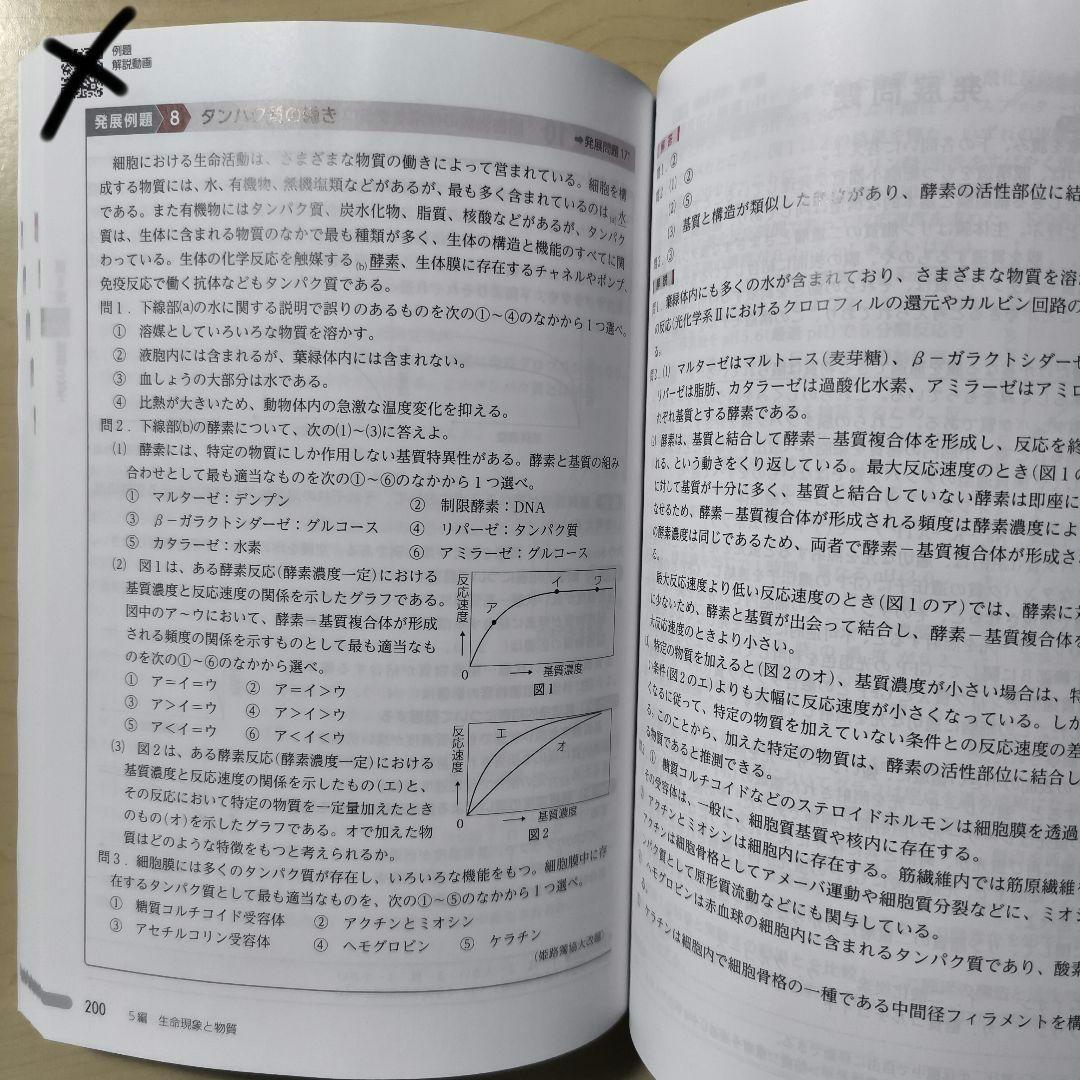 例題
解説動画
発展例題 8 タンパク質の働き
➡発展問題 17
細胞における生命活動は、さまざまな物質の働きによって営まれている。細胞を構
成する物質には、水、有機物、無機塩類などがあるが、最も多く含まれているのは(a)水
である。また有機物にはタンパク質、炭水化物、脂質、核酸などがあるが、タンパク
質は、生体に含まれる物質のなかで最も種類が多く、生体の構造と機能のすべてに関
わっている。生体の化学反応を触媒する(b)酵素、生体膜に存在するチャネルやポンプ、
免疫反応で働く抗体などもタンパク質である。
問1．下線部(a)の水に関する説明で誤りのあるものを次の①～④のなかから1つ選べ。
① 溶媒としていろいろな物質を溶かす。
② 液胞内には含まれるが、葉緑体内には含まれない。
③ 血しょうの大部分は水である。
④ 比熱が大きいため、動物体内の急激な温度変化を抑える。
問2．下線部(b)の酵素について、次の(1)～(3)に答えよ。
(1) 酵素には、特定の物質にしか作用しない基質特異性がある。酵素と基質の組み
合わせとして最も適当なものを次の①～⑥のなかから1つ選べ。
① マルターゼ：デンプン ② 制限酵素：DNA
③ β－ガラクトシダーゼ：グルコース ④ リパーゼ：タンパク質
⑤ カタラーゼ：水素 ⑥ アミラーゼ：グルコース
(2) 図1は、ある酵素反応(酵素濃度一定)における
基質濃度と反応速度の関係を示したグラフである。
図中のア～ウにおいて、酵素－基質複合体が形成
される頻度の関係を示すものとして最も適当なも
のを次の①～⑥のなかから選べ。
① ア＝イ＝ウ ② ア＝イ＞ウ
③ ア＞イ＝ウ ④ ア＞イ＞ウ
⑤ ア＜イ＝ウ ⑥ ア＜イ＜ウ
反応速度
ア
イ
ウ
0
基質濃度
図1
(3) 図2は、ある酵素反応(酵素濃度一定)における
基質濃度と反応速度の関係を示したもの(エ)と、
その反応において特定の物質を一定量加えたとき
のもの(オ)を示したグラフである。オで加えた物
質はどのような特徴をもつと考えられるか。
反応速度
エ
オ
0
基質濃度
図2
問3．細胞膜には多くのタンパク質が存在し、いろいろな機能をもつ。細胞膜中に存
在するタンパク質として最も適当なものを、次の①～⑤のなかから1つ選べ。
① 糖質コルチコイド受容体 ② アクチンとミオシン
③ アセチルコリン受容体 ④ ヘモグロビン ⑤ ケラチン
(姫路獨協大改題)
200
5編 生命現象と物質
解答
問1．②
(1) ②
(2) ⑤
(3) 基質と構造が類似した があり、酵素の活性部位に結
③
解説
葉緑体内にも多くの水が含まれており、さまざまな物質を溶か
の反応(光化学系Ⅱにおけるクロロフィルの還元やカルビン回路の
る。
(1) マルターゼはマルトース(麦芽糖)、β－ガラクトシダーゼ
リパーゼは脂肪、カタラーゼは過酸化水素、アミラーゼはアミロ
れぞれ基質とする酵素である。
酵素は、基質と結合して酵素－基質複合体を形成し、反応を終
れる、という動きをくり返している。最大反応速度のとき(図1の
に対して基質が十分に多く、基質と結合していない酵素は即座に
なせるため、酵素－基質複合体が形成される頻度は酵素濃度によ
の酵素濃度は同じであるため、両者で酵素－基質複合体が形成さ
る。
最大反応速度より低い反応速度のとき(図1のア)では、酵素に対
に少ないため、酵素と基質が出会って結合し、酵素－基質複合体を
大反応速度のときより小さい。
特定の物質を加えると(図2のオ)、基質濃度が小さい場合は、特
い条件(図2のエ)よりも大幅に反応速度が小さくなっている。しか
くなるに従って、特定の物質を加えていない条件との反応速度の差
る。このことから、加えた特定の物質は、酵素の活性部位に結合し
る物質であると推測できる。
① 糖質コルチコイドなどのステロイドホルモンは細胞膜を透過
その受容体は、一般に、細胞質基質や核内に存在する。
アクチンとミオシンは細胞内に存在する。筋繊維内では筋原繊維を
アクチンは細胞骨格としてアメーバ運動や細胞質分裂などに、ミオシ
ンパク質として原形質流動などにも関与している。
ヘモグロビンは赤血球の細胞内に含まれるタンパク質であり、酸素
る。
ケラチンは細胞内で細胞骨格の一種である中間径フィラメントを構